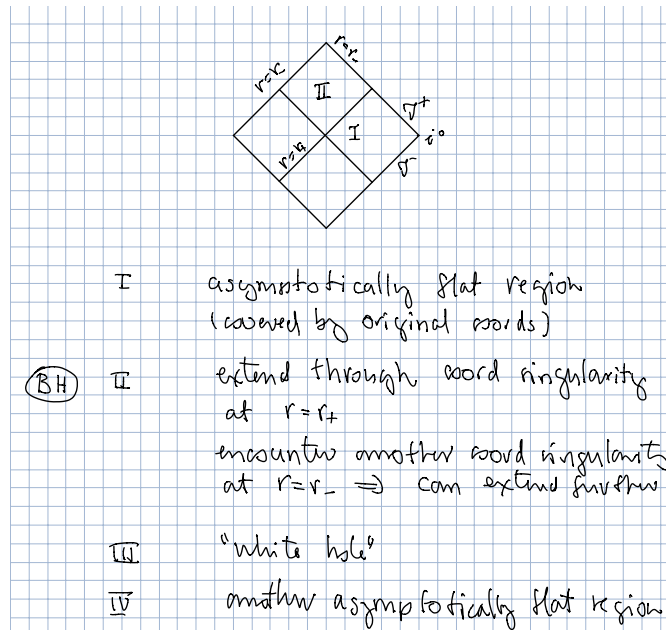 r=r-
r=r-
II
I
r=r+
J+
i°
J-
I asymptotically flat region
(covered by original coords)
BH II extend through coord singularity
at r=r+
encounter another coord singularity
at r=r- ⇒ can extend further
III "white hole"
IV another asymptotically flat region